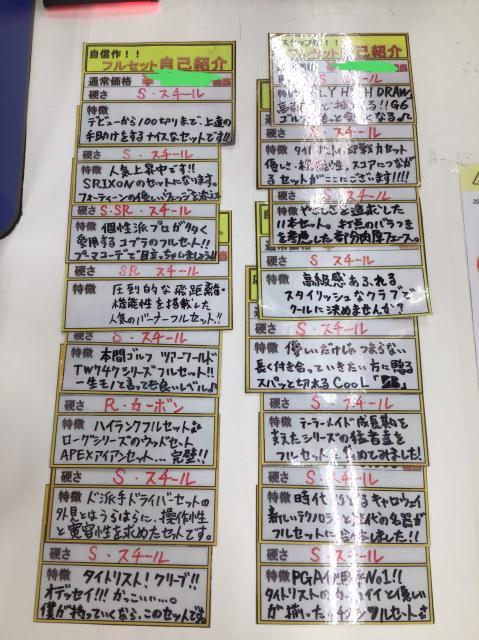 自信作！！
フルセット自己紹介
通常価格
硬さ S・スチール
特徴
デビューから100切りまで、上達の
手助けをするナイスなセットです!!
硬さ S・スチール
特徴 人気上昇中です!!
SRIXONのセットになります。
フォーティーンの優しいウェッジを添えて
硬さ S・SR・スチール
特徴 個性派プロが多く
愛用するコブラのフルセット!!
プーマコーデで目立っちゃいましょう!!
硬さ SR スチール
特徴 圧倒的な飛距離・
機能性を搭載した
人気のバーナーフルセット!!
硬さ S・スチール
特徴 本間ゴルフ ツアーワールド
TW747シリーズフルセット!!
一生モノと言っても良いレベル♪
硬さ R・カーボン
特徴 ハイランクフルセット
ローグシリーズのウッドセット
APEXアイアンセット…完璧!!
硬さ S・スチール
特徴 ド派手ドライバーセットの
外見とはうらはらに、操作性
と寛容性を求めたセットです。
硬さ S・スチール
特徴 タイトリスト！クリーブ!!
オデッセイ!!! かっこいい…。
僕が持っていくなら、このセットです
自己紹介
硬さ S・スチール
特徴 HIGH DRAW
G6
硬さ S・スチール
特徴
優しさ・スコアにつながる
セットがここにございます!!!!
硬さ S・スチール
特徴 やさしさを追求した
11本セット。打点のバラつき
を考慮した部分肉厚フェース。
硬さ S・スチール
特徴 高級感あふれる
スタイリッシュなクラブで
クールに決めませんか？
硬さ S・スチール
特徴 優しいだけじゃつまらない
長く付き合っていきたい方に贈る
スパッと切れるCooL
硬さ S・スチール
特徴 テーラーメイド成長期を
支えたシリーズの猛者達を
フルセットに
硬さ S・スチール
特徴 時代 キャロウェイ
新しいテクノロジーと 代の名器が
フルセットに しました!!
硬さ S・スチール
特徴 PGA No.1!!
タイトリストの 優しい
が揃った フルセット